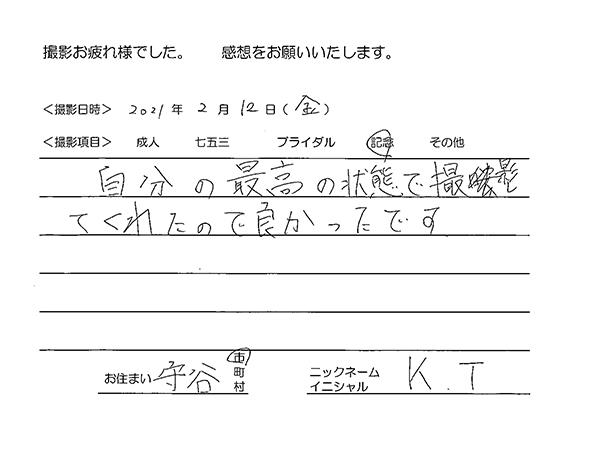 撮影お疲れ様でした。 感想をお願いいたします。
<撮影日時> 2021 年 2 月 12 日 (金)
<撮影項目> 成人 七五三 ブライダル 記念 その他
自分の最高の状態で撮影し
てくれたので良かったです
お住まい 守谷 市 町 村 ニックネーム イニシャル K.T